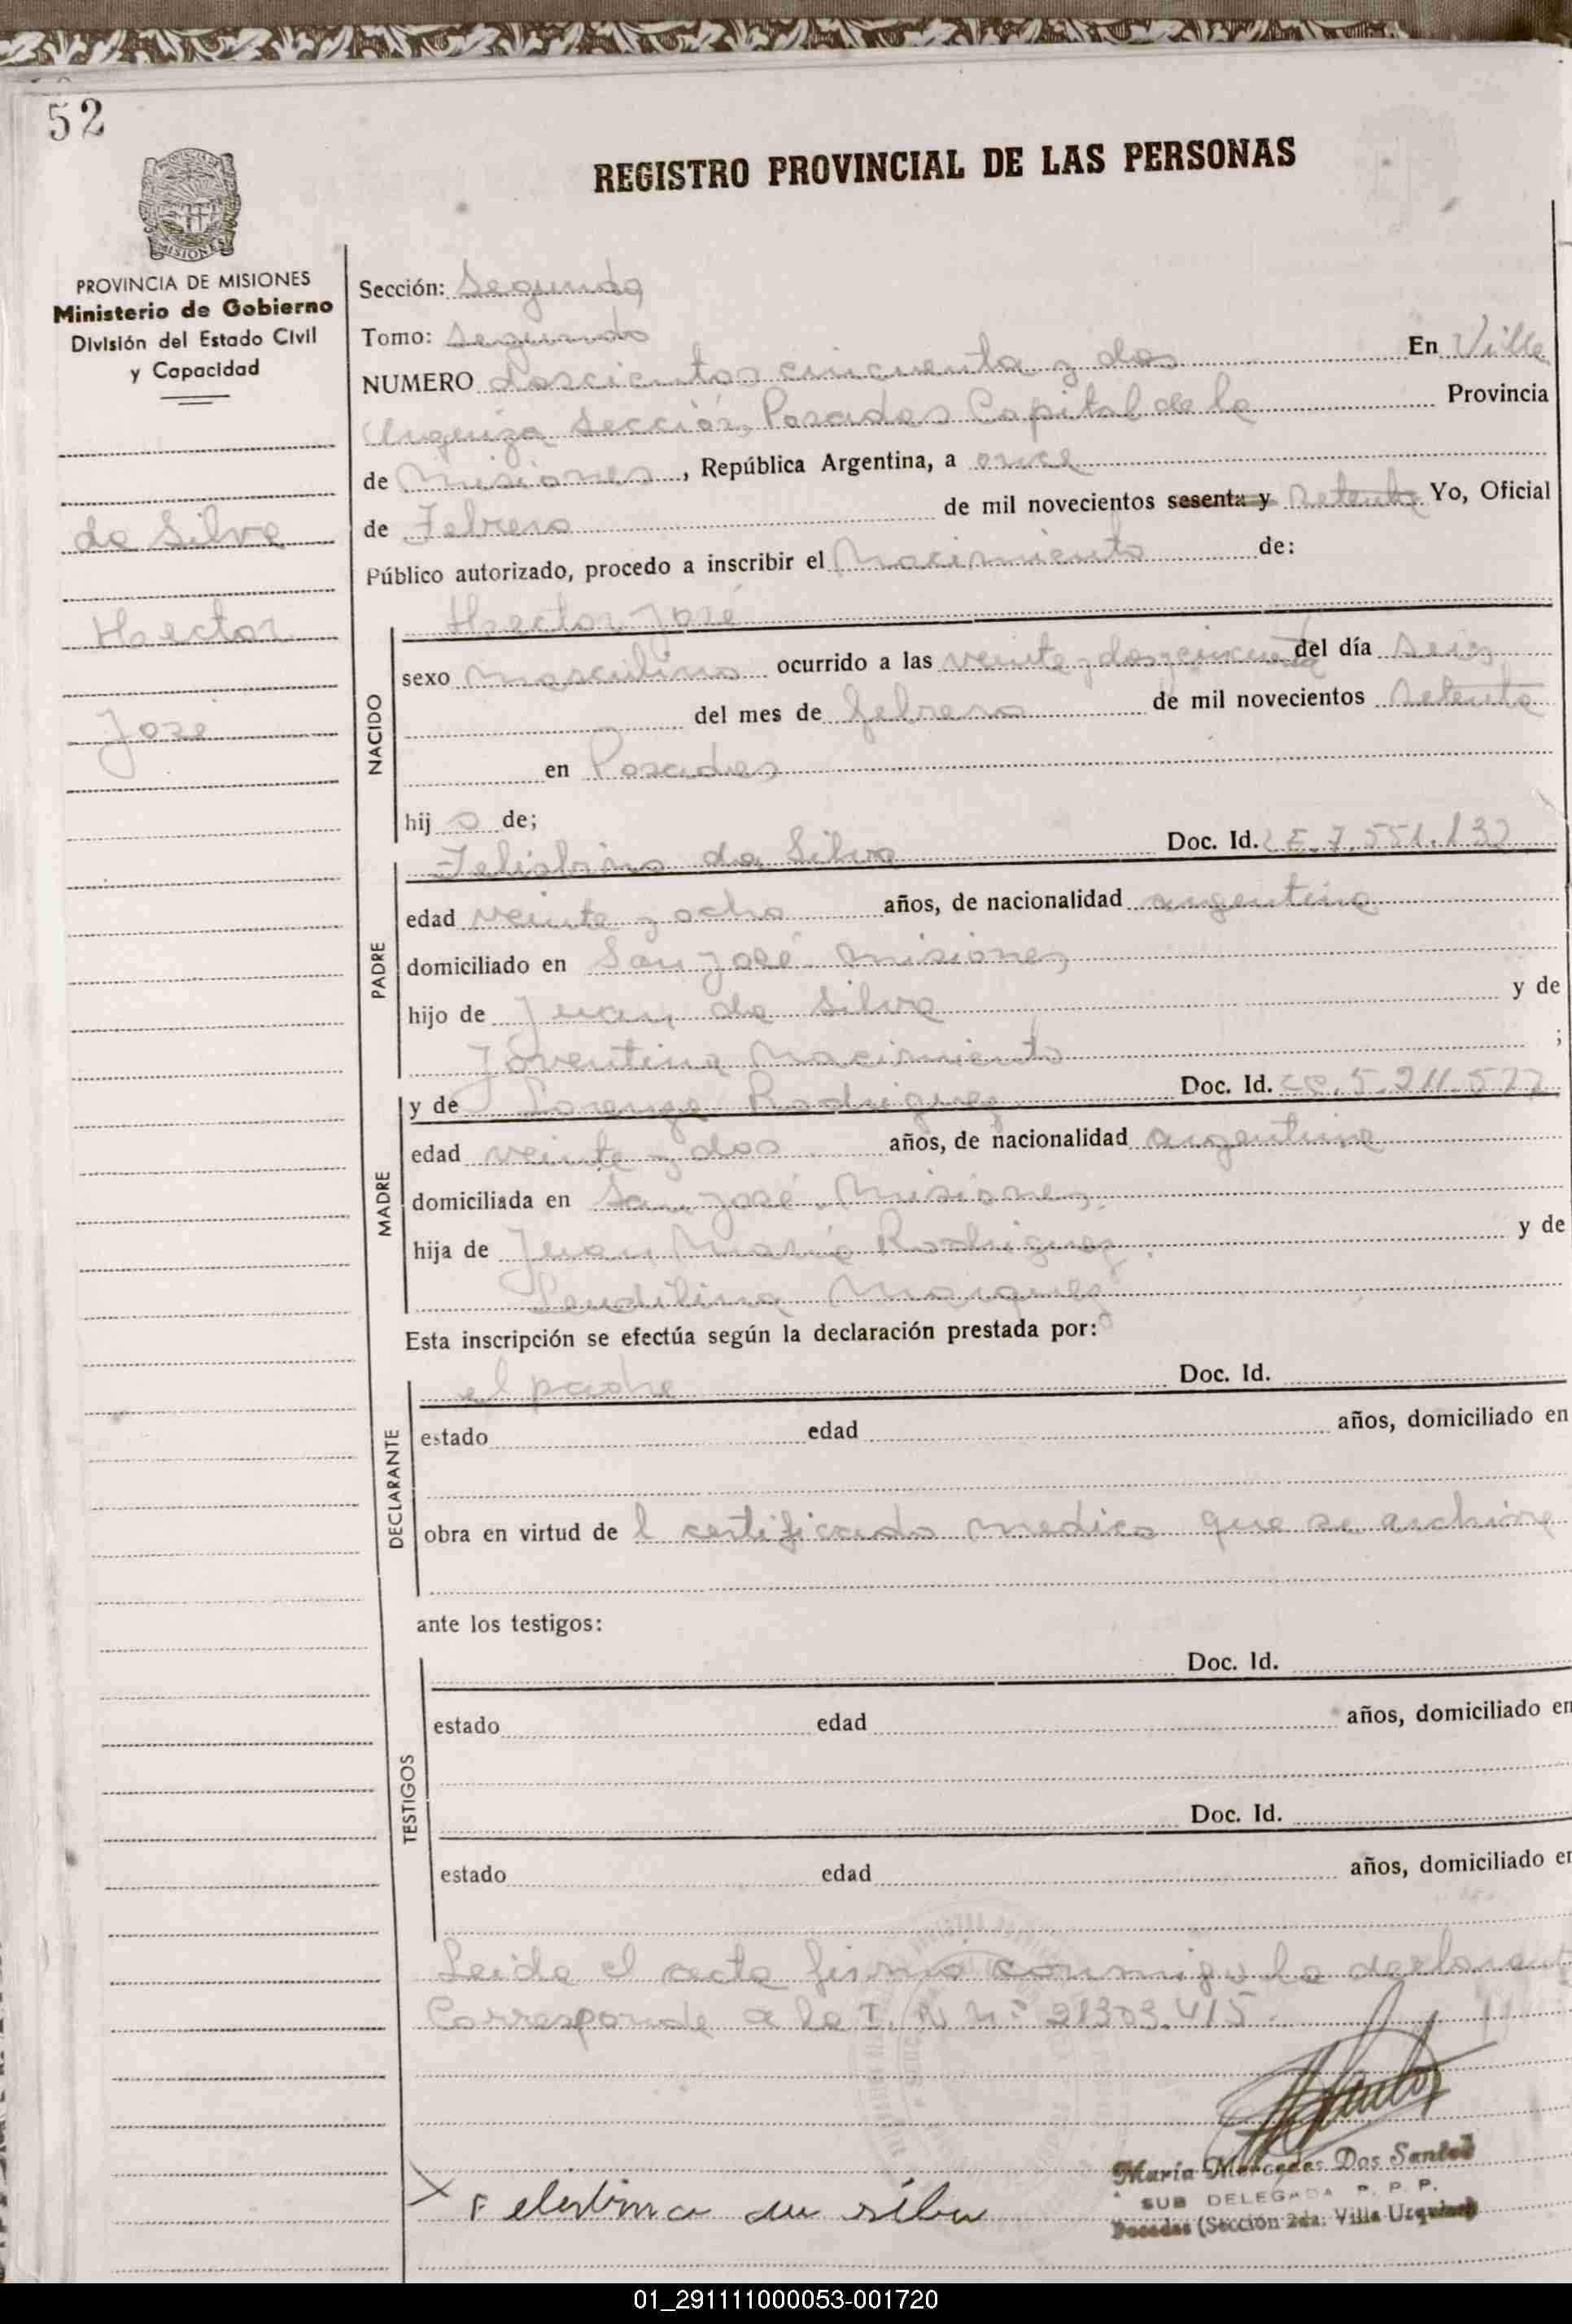 52
REGISTRO PROVINCIAL DE LAS PERSONAS
MISIONES
PROVINCIA DE MISIONES
Ministerio de Gobierno
División del Estado Civil
y Capacidad
da Silva
Hector
José
Sección: Segunda
Tomo: Segundo
NUMERO Doscientos cincuenta y dos En Villa
Urquiza Sección, Posadas Capital de la Provincia
de Misiones, República Argentina, a once
de Febrero de mil novecientos sesenta y setenta Yo, Oficial
Público autorizado, procedo a inscribir el Nacimiento de:
NACIDO
Hector José
sexo masculino ocurrido a las veinte y dos y cincuenta del día seis
del mes de febrero de mil novecientos setenta
en Posadas
hij o de;
PADRE
da Silva Doc. Id. L E. 7.551.132
edad veinte y ocho años, de nacionalidad argentina
domiciliado en San José Misiones
hijo de Juan da Silva y de
Joventina Nacimiento ;
MADRE
y de Lorenza Rodriguez Doc. Id. 5.211.577
edad veinte y dos años, de nacionalidad argentina
domiciliada en San José Misiones
hija de Juan María Rodriguez y de
Esta inscripción se efectúa según la declaración prestada por:
DECLARANTE
el padre Doc. Id.
estado edad años, domiciliado en
obra en virtud de l certificado medico que se archiva
ante los testigos:
TESTIGOS
Doc. Id.
estado edad años, domiciliado en
Doc. Id.
estado edad años, domiciliado en
Leida el acta firmó conmigo
Corresponde a la I. N Nº 21303.415.
María Mercedes Dos Santos
SUB DELEGADA P. P. P.
Posadas (Sección 2da. Villa Urquiza)
01_291111000053-001720